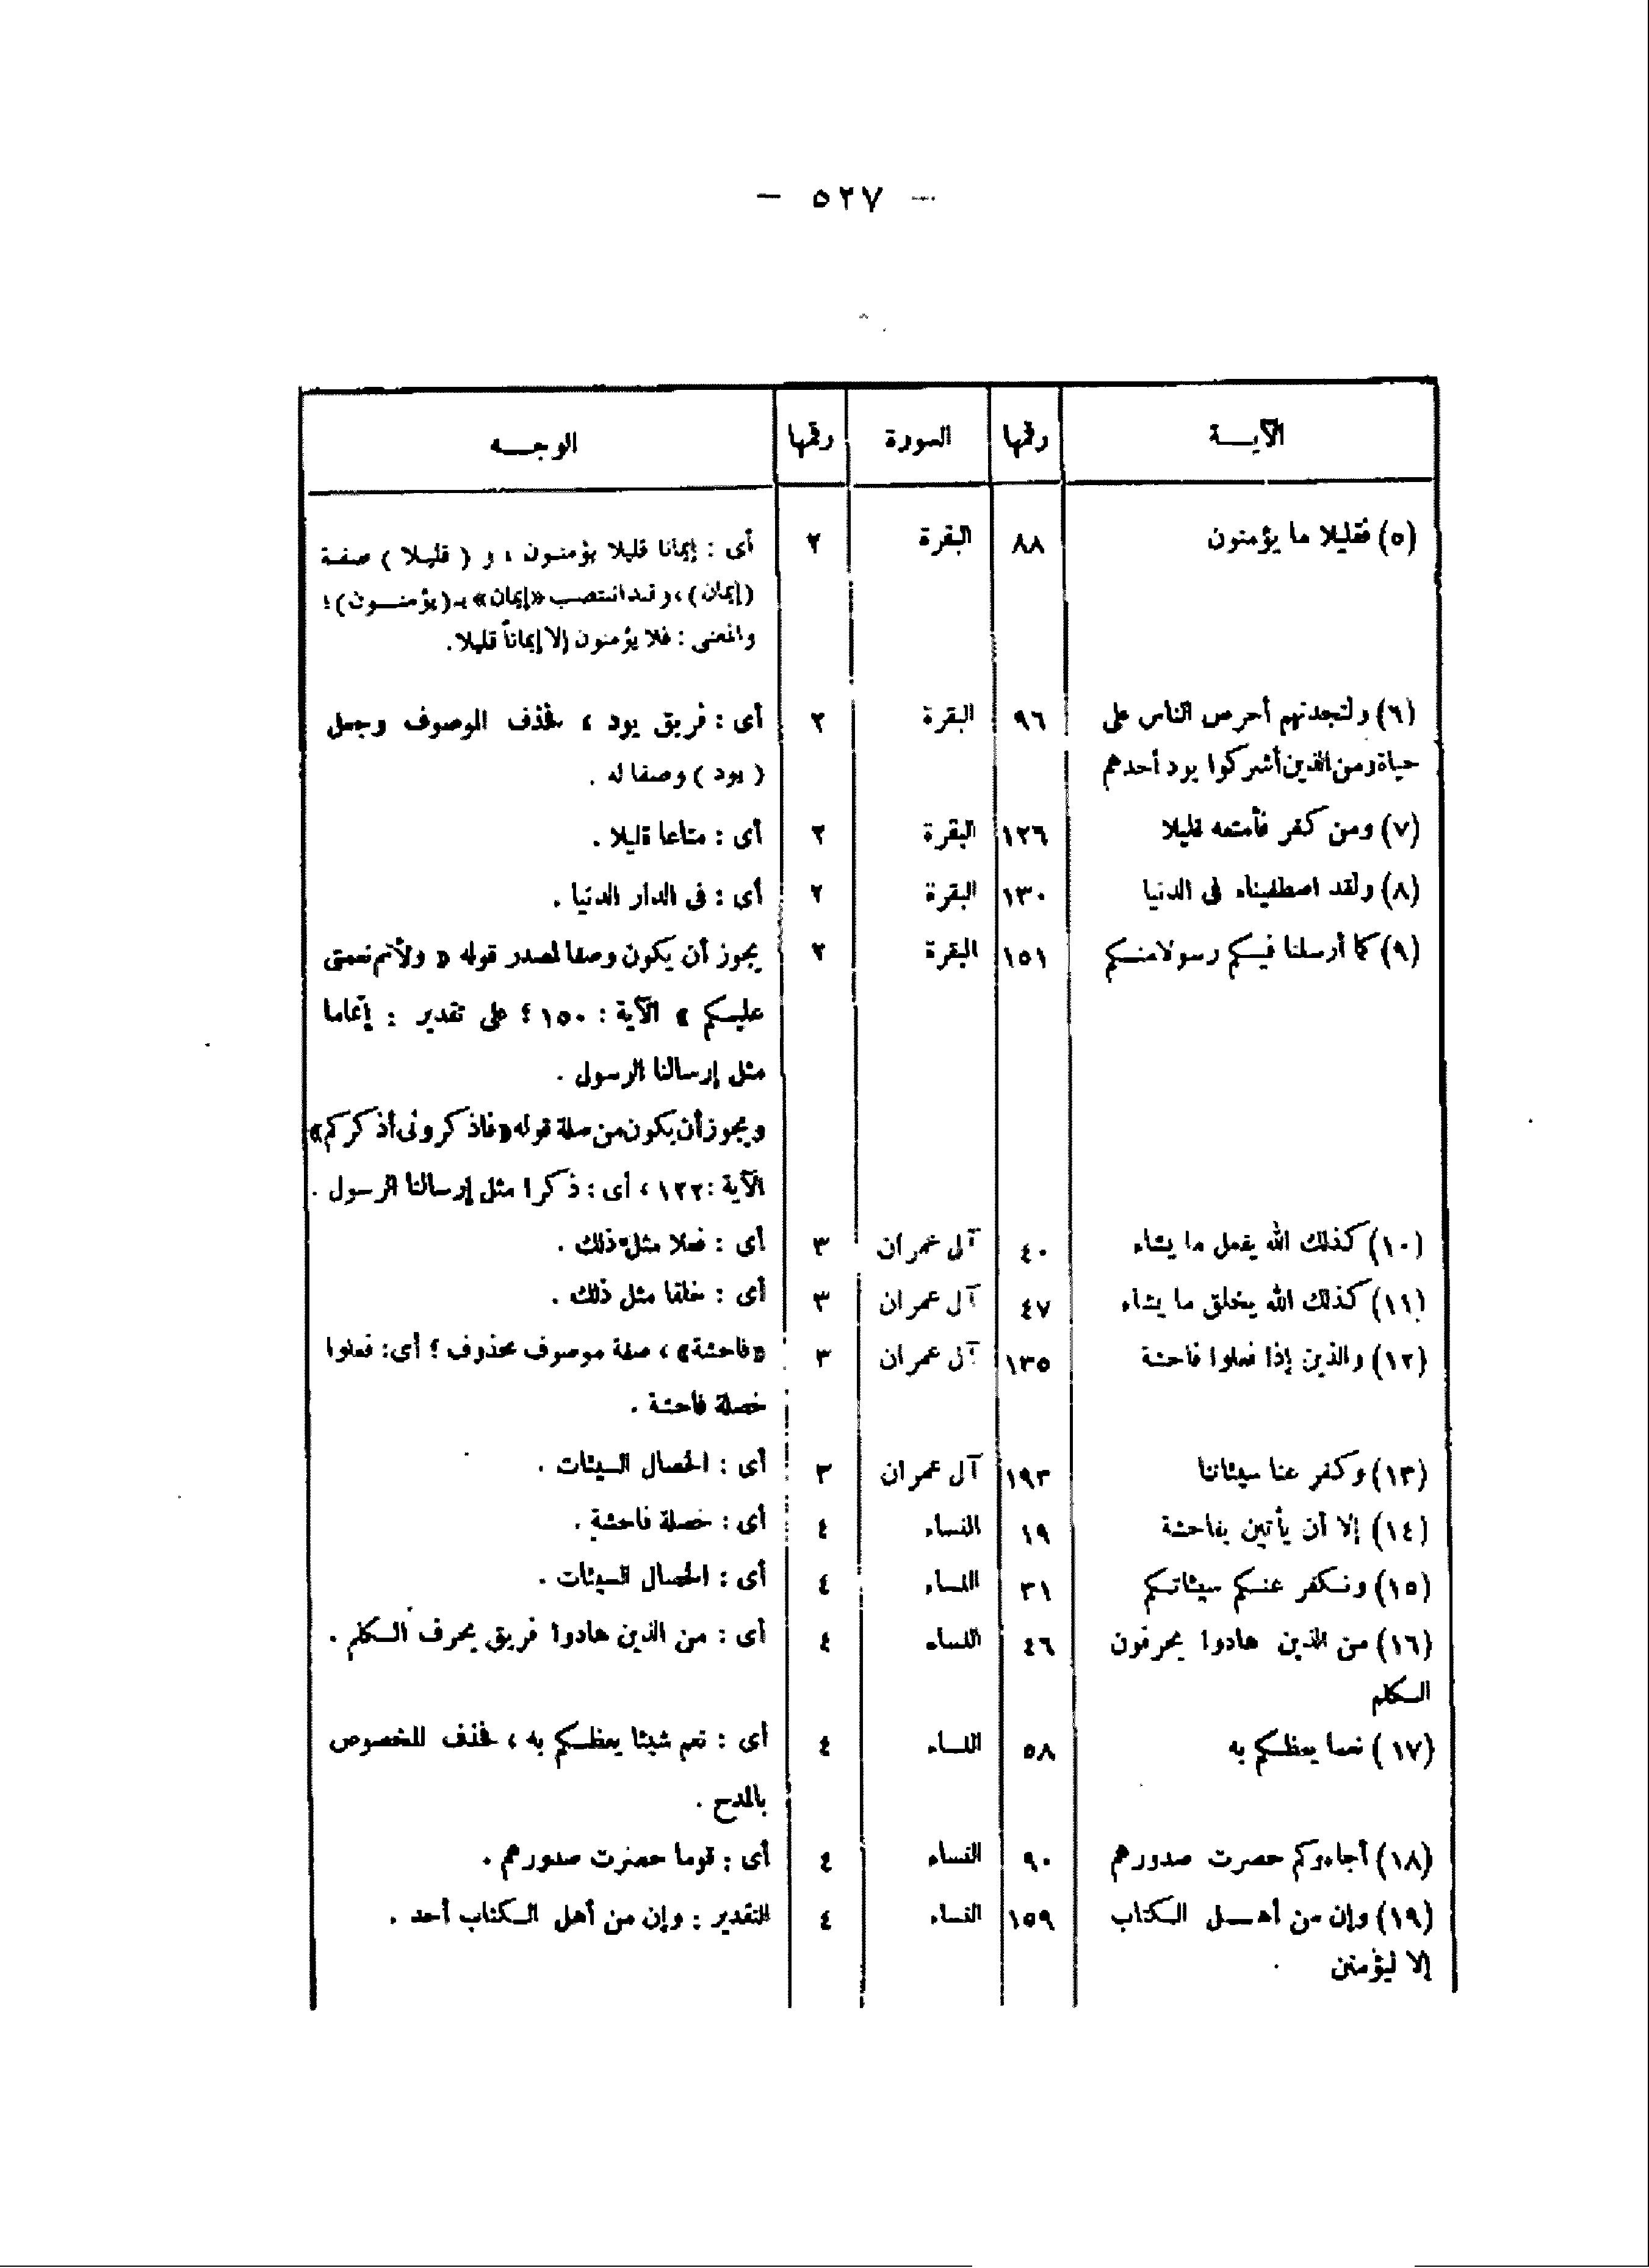 — ٥٢٧ —
الآيـــة رقمها السورة رقمها الوجـــه
(٥) فقليلا ما يؤمنون ٨٨ البقرة ٢ أى : إيمانا قليلا يؤمنـون ، و ( قليـلا ) صفـة
(إيمان) ، وقد انتصب «إيمان» بـ (يؤمنـــون) ؛
والمعنى : فلا يؤمنون إلا إيماناً قليلا .
(٦) ولتجدنهم أحرص الناس على ٩٦ البقرة ٢ أى : فريق يود ، فحذف الموصوف وجعل
حياة ومن الذين أشركوا يود أحدهم ( يود ) وصفا له .
(٧) ومن كفر فأمتعه قليلا ١٢٦ البقرة ٢ أى : متاعا قليلا .
(٨) ولقد اصطفيناه فى الدنيا ١٣٠ البقرة ٢ أى : فى الدار الدنيا .
(٩) كما أرسلنا فيـكم رسولا منـكم ١٥١ البقرة ٢ يجوز أن يكون وصفا لمصدر قوله « ولأتم نعمتى
عليـكم » الآية : ١٥٠ ؛ على تقدير : إتماما
مثل إرسالنا الرسول .
ويجوز أن يكون من صلة قوله «فاذكرونى أذكركم»
الآية : ١٢٢ ، أى : ذكرا مثل إرسالنا الرسول .
(١٠) كذلك الله يفعل ما يشاء ٤٠ آل عمران ٣ أى : فعلا مثل ذلك .
(١١) كذلك الله يخلق ما يشاء ٤٧ آل عمران ٣ أى : خلقا مثل ذلك .
(١٢) والذين إذا فعلوا فاحشة ١٣٥ آل عمران ٣ «فاحشة» ، صفة موصوف محذوف ؛ أى : فعلوا
خصلة فاحشة .
(١٣) وكفر عنا سيئاتنا ١٩٣ آل عمران ٣ أى : الخصال السيئات .
(١٤) إلا أن يأتين بفاحشة ١٩ النساء ٤ أى : خصلة فاحشة .
(١٥) ونـكفر عنـكم سيئاتـكم ٣١ النساء ٤ أى : الخصال السيئات .
(١٦) من الذين هادوا يحرفون ٤٦ النساء ٤ أى : من الذين هادوا فريق يحرف الـكلم .
الـكلم
(١٧) نعما يعظـكم به ٥٨ النساء ٤ أى : نعم شيئا يعظـكم به ، فحذف المخصوص
بالمدح .
(١٨) أجاءوكم حصرت صدورهم ٩٠ النساء ٤ أى : قوما حصرت صدورهم .
(١٩) وإن من أهـــل الـكتاب ١٥٩ النساء ٤ التقدير : وإن من أهل الـكتاب أحد .
إلا ليؤمنن